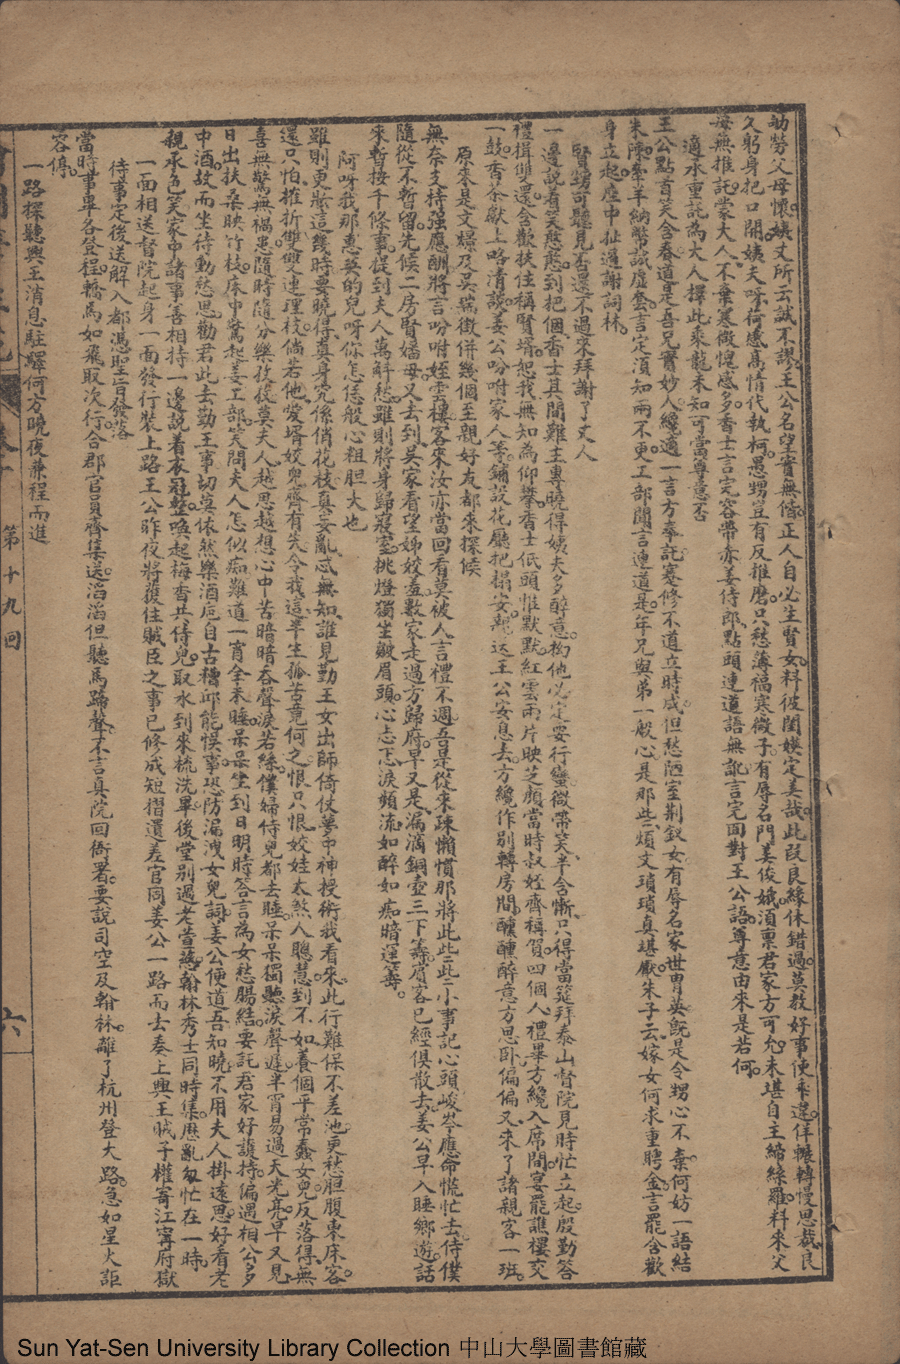 劬勞父母懷姨丈所云試不謬王公名望實無偕正人自必生賢女料彼閨媛定美哉此段良緣休錯過莫教好事使乖違佯輾轉慢思裁良
久躬身把口開姨夫呀荷感高情代執柯愚甥豈有反推磨只愁薄福寒微子有辱名門美俊娥須禀君家方可允未堪自主締絲羅料來父
母無推託蒙大人不棄寒微愧感多香士言完容帶赤姜侍郎點頭連道語無訛言完回對王公語尊意由來是若何
適承重託為大人擇此乘龍未知可當尊意否
王公點首笑含春道是吾兄賣妙人纔適一言方奉託蹇修不道立時成但愁陋室荆釵女有辱名家世冑英既是令甥心不棄何妨一語結
朱陳牽羊納幣誠虛套言定須知兩不更工部聞言連道是年兄與弟一般心是那些煩文瑣瑣真堪厭朱子云嫁女何求重聘金言罷含歡
身立起座中扯過謝詞林
賢甥可聽見否還不過來拜謝了丈人
一邊說着笑慇慇到把個香士其間難主專曉得姨夫多醉意拗他必定妄行蠻微帶笑半含慚只得當筵拜泰山督院見時忙立起殷勤答
禮揖雙還含歡扶住稱賢壻恕我無知為仰攀香士低頭惟默默紅雲兩片映芝顏當時叔姪齊稱賀四個人禮畢方纔入席間宴罷譙樓交
一鼓香茶獻上略清談姜公吩咐家人等鋪設花廳把榻安親送王公安息去方纔作別轉房間醺醺醉意方思臥偏偏又來了諸親客一班
原來是文婦乃吳葉徵併幾個至親好友都來探候
無奈支持強應酬將言吩咐姪雲樓客來汝亦當回看莫被人言禮不週吾是從來疎懶慣那將此些些小事記心頭峻岑應命慌忙去侍僕
隨從不暫留先候二房賢嬸母又去到吳家看望姊姣羞數家走過方歸府早又是漏滴銅壺三下籌賓客已經俱散去姜公早入睡鄉遊話
來暫接千條事提到夫人萬觧愁雖則將身歸寢室挑燈獨坐皺眉頭心忐忑淚頻流如醉如痴暗運籌
阿呀我那惠英的兒呀你怎恁般心粗胆大也
雖則更裝這幾時要曉得真身究係俏花枝真妄亂忒無知誰見勤王女出師倚仗夢中神授術我看來此行難保不差池更愁胆腹東床客
還只怕摧折雙雙連理枝倘若他愛壻姣兒齊有失令我這半生孤苦竟何之恨只恨姣娃太煞人聰慧到不如養個平常蠢女兒反落得無
喜無驚無禍患隨時隨分樂孜孜莫夫人越思越想心中苦暗暗吞聲淚若絲僕婦侍兒都去睡呆呆獨聽淚聲遲半宵易過天光亮早又見
日出扶桑映竹枝床中驚起姜工部笑問夫人怎似痴難道一宵全未睡呆呆坐到日明時答言為女愁腸結要託君家好護持偏遇相公多
中酒故而坐待動愁思勸君此去勤王事切莫依然樂酒卮自古糟邱能悞事恐防漏洩女兒詞姜公便道吾知曉不用夫人掛遠思好看老
親承色笑家中諸事善相持一邊說着衣冠整喚起梅香共侍兒取水到來梳洗畢後堂別過老萱慈翰林秀士同時集歷亂匆忙在一時
一面相送督院起身一面發行裝上路王公昨夜將獲住賊臣之事已修成短摺遣差官同姜公一路而去奏上興王賊子權寄江寧府獄
待事定後送解入都憑聖旨發落
當時事畢各登程轎馬如飛取次行合郡官員齊集送滔滔但聽馬蹄聲不言真院回衙署要說司空及翰林離了杭州登大路急如星火詎
容停
一路探聽興王消息駐驛何方曉夜兼程而進
第十九回
六
Sun Yat-Sen University Library Collection 中山大學圖書館藏